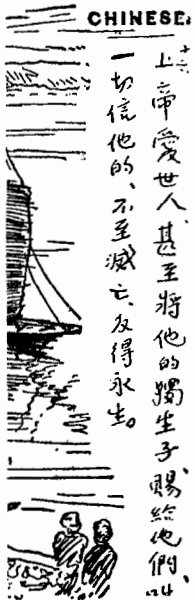 CHINESE.
十六 上帝愛世人、甚至將他的獨生子、賜給他們、叫
一切信他的、不至滅亡、反得永生。